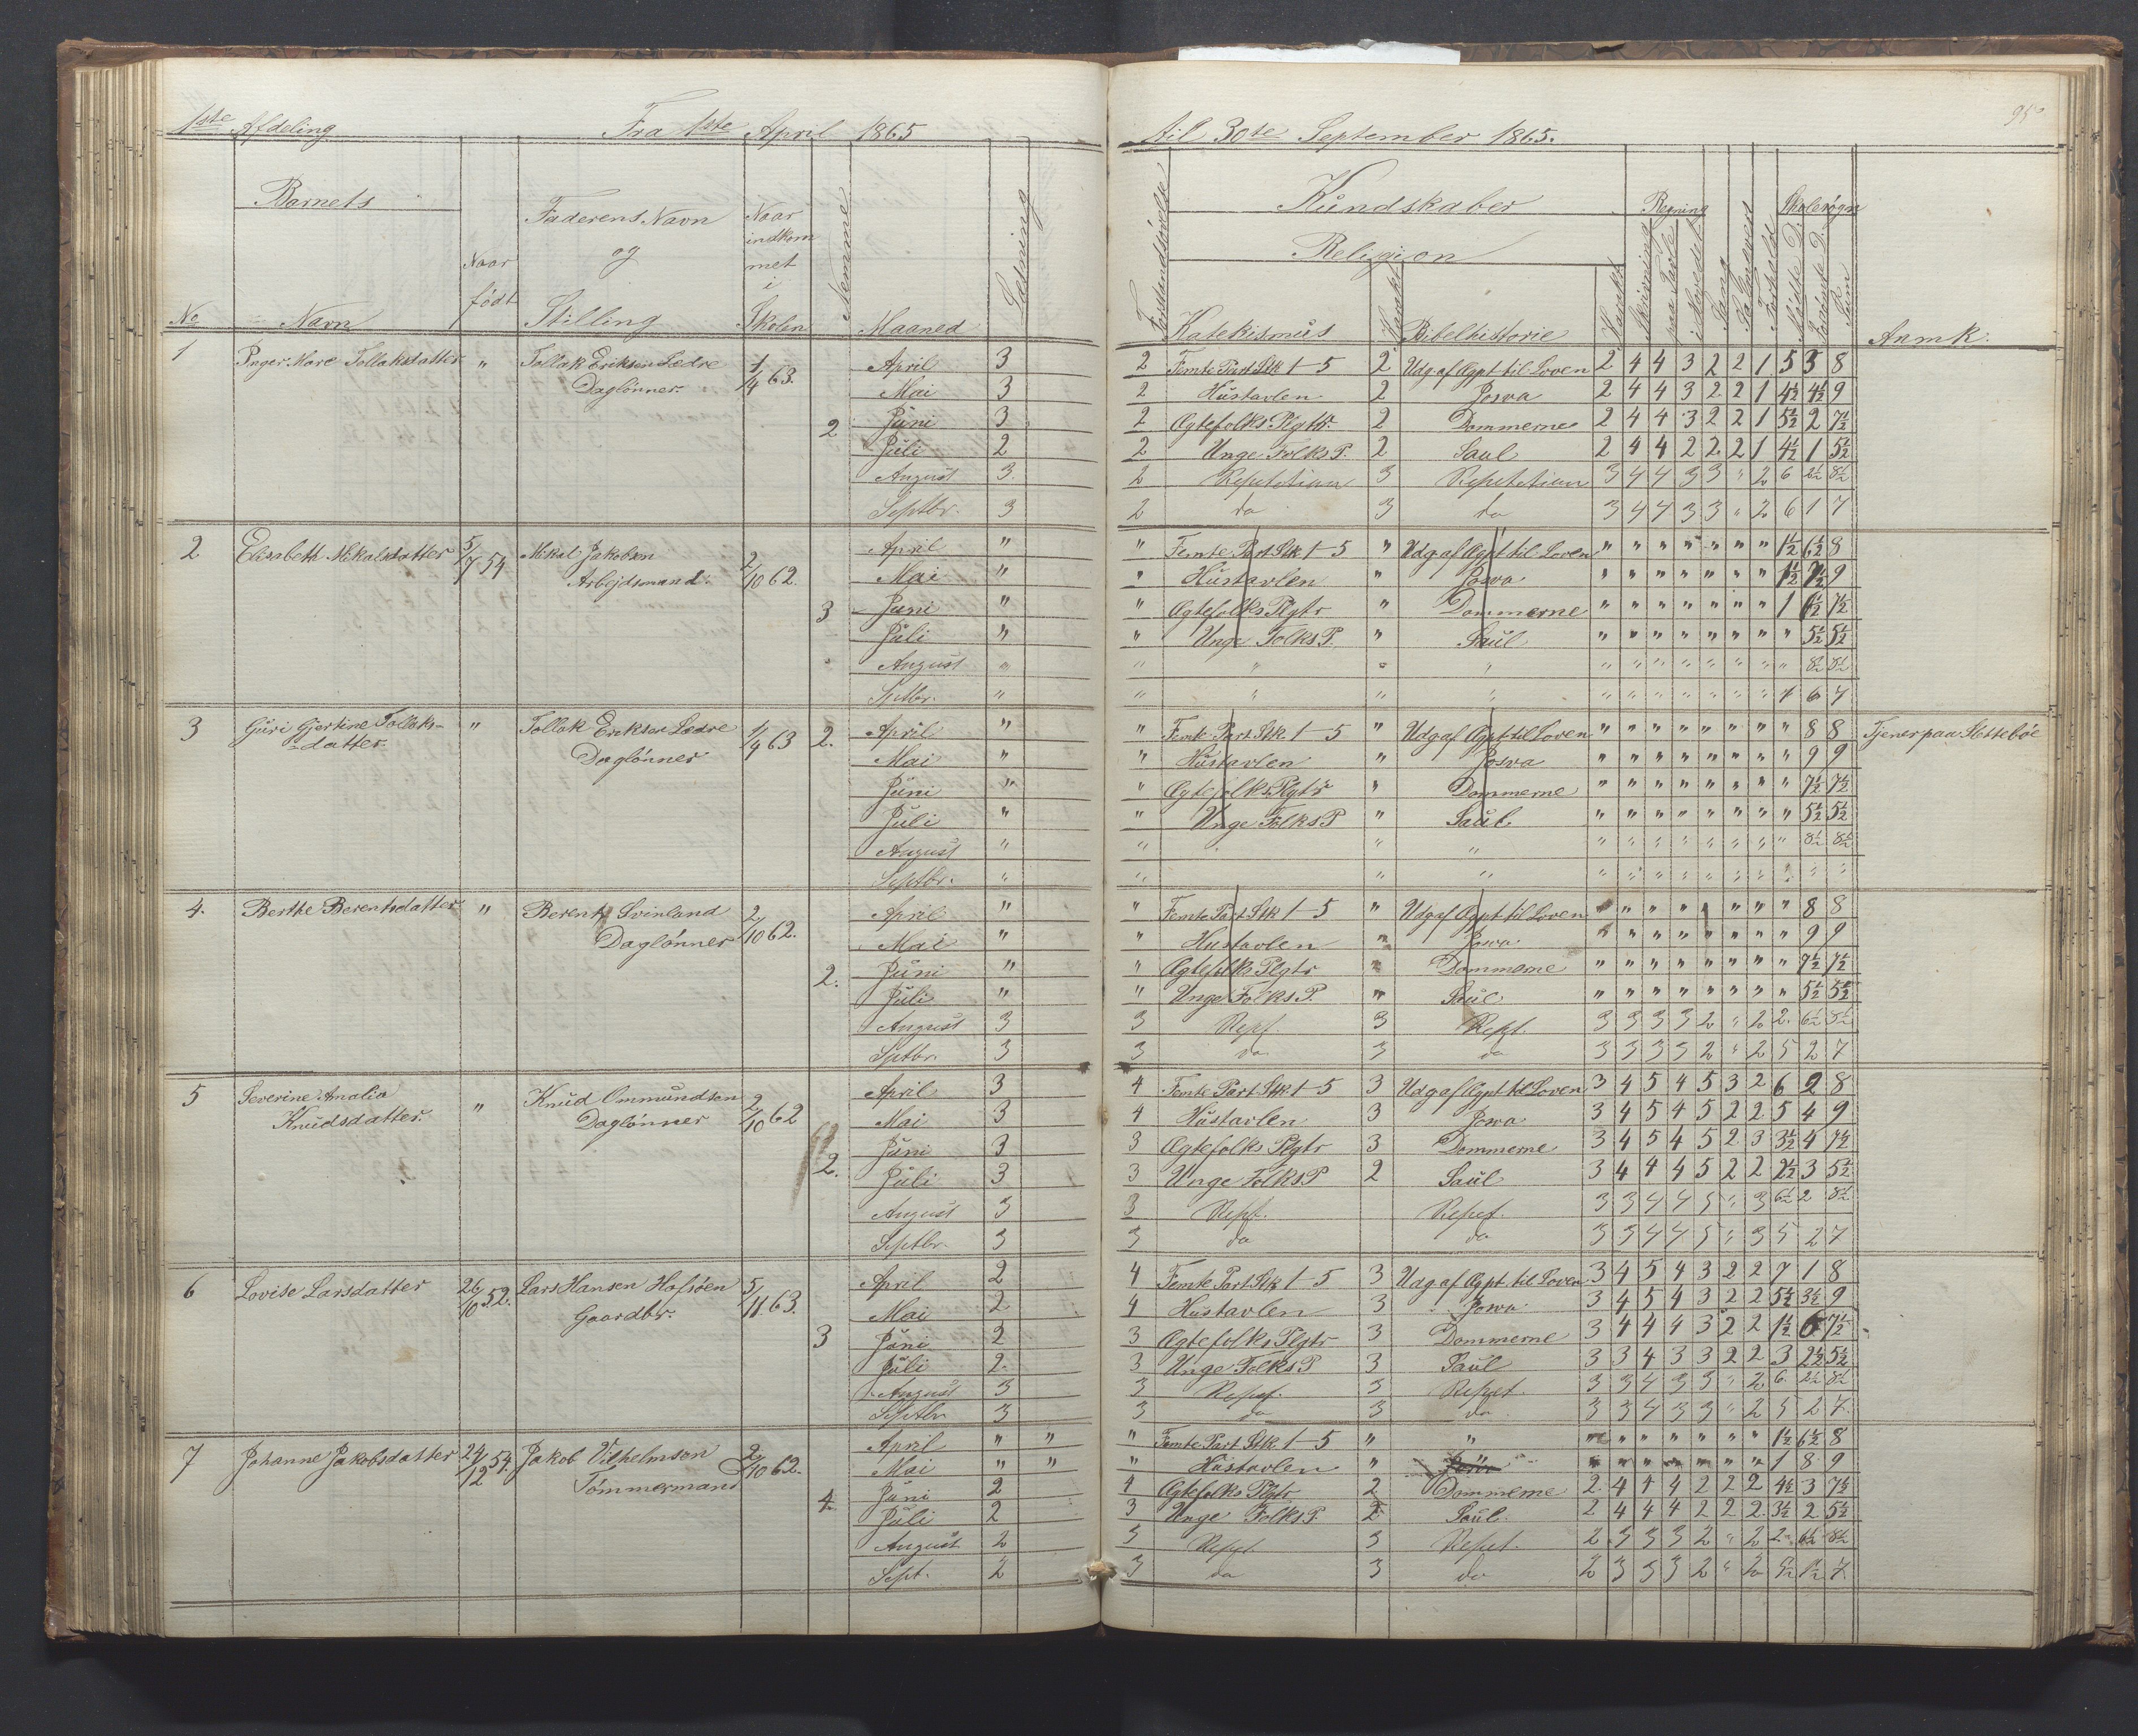 1ste Afdeling Fra 1ste April 1865 til 30te September 1865. 95
No Barnets Navn Naar født Faderens Navn og Stilling Naar indkommet i Skolen Nemme Maaned Læsning Forstandsøvelse Kundskaber Religion Katekismus Bibelhistorie Skrivning Regning paa Tavle i Hovedet Sang Forhold Mødte D. Forsømte D. Sum Anmk:
1 Inger Mare Tollaksdatter " Tollak Eriksen Ledre Daglønner. 1/4 63. 2
April 3 2 Femte Part Stk 1-5 2 Udg af Ægpt til Loven 2 4 4 3 2 2 1 5 3 8
Mai 3 2 Hustavlen 2 Josva 2 4 4 3 2 2 1 4½ 4½ 9
Juni 3 2 Ægtefolks Plgtr 2 Dommerne 2 4 4 3 2 2 1 5½ 2 7½
Juli 2 2 Unge Folks P. 2 Saul 2 4 4 2 2 2 1 4½ 1 5½
August 3 2 Repetetion 3 Repetetion 3 4 4 3 3 " 2 6 2½ 8½
Septbr. 3 2 do 3 do 3 4 4 3 3 " 2 6 1 7
2 Elisabeth Mikalsdatter 5/7 54 Mikal Jakobsen Arbejdsmand. 2/10 62. 3
April " " Femte Part Stk 1-5 " Udg af Ægpt til Loven " " " " " " " 1½ 6½ 8
Mai " " Hustavlen " Josva " " " " " " " 1½ 7½ 9
Juni " " Ægtefolks Plgtr " Dommerne " " " " " " " 1 6½ 7½
Juli " " Unge Folks P. " Saul " " " " " " " " 5½ 5½
August " " " " " " " " " " " " " 8½ 8½
Sptbr. " " " " " " " " " " " " 1 6 7
3 Guri Gjertine Tollaks-datter. " Tollak Eriksen Ledre Daglønner 1/4 63 2.
April " " Femte Part Stk 1-5 " Udg af Ægpt til Loven " " " " " " " " 8 8 Tjener paa Slettebøe
Mai " " Hustavlen " Josva " " " " " " " " 9 9
Juni " " Ægtefolks Plgtr " Dommerne " " " " " " " " 7½ 7½
Juli " " Unge Folks P " Saul " " " " " " " " 5½ 5½
August " " " " " " " " " " " " 8½ 8½
Septbr. " " " " " " " " " " " " " "
4. Berthe Berentsdatter " Berent Svinland Daglønner 2/10 62. 2.
April " " Femte Part Stk 1-5 " Udg af Ægpt til Loven " " " " " " " " 8 8
Mai " " Hustavlen " Josva " " " " " " " " 9 9
Juni " " Ægtefolks Plgtr " Dommerne " " " " " " " " 7½ 7½
Juli " " Unge Folks P. " Saul " " " " " " " " 5½ 5½
August 3 3 Rept. 3 Rept. 3 3 3 3 2 " 2 2. 6½ 8½
Sptbr. 3 3 do 3 do 3 3 3 3 2 " 2 5 2 7
5 Severine Analia Knudsdatter. " Knud Ommundsen Daglønner 2/10 62 2.
April 3 4 Femte Part Stk 1-5 3 Udg af Ægpt til Loven 3 4 5 4 5 3 2 6 2 8
Mai 3 4 Hustavlen 3 Josva 3 4 5 4 5 2 2 5 4 9
Juni 3 3 Ægtefolks Plgtr 3 Dommerne 3 4 5 4 5 2 3 3½ 4 7½
Juli 3 3 Unge Folks P 2 Saul 3 4 4 4 5 2 2 2½ 3 5½
August 3 3 Rept. Repet. 3 3 4 4 5 " 3 6½ 2 8½
Septbr. 3 3 do do 3 3 4 4 5 " 3 5 2 7
6 Lovise Larsdatter 26/10 52. Lars Hansen Hafsøen Gaardbr. 5/11 63. 3
April 2 4 Femte Part Stk 1-5 3 Udg af Ægpt til Loven 3 4 5 4 3 2 2 7 1 8
Mai 2 4 Hustavlen 3 Josva 3 4 5 4 3 2 2 5½ 3½ 9
Juni 2 3 Ægtefolks Plgtr 3 Dommerne 3 4 4 4 3 2 2 1½ 6 7½
Juli 2. 3 Unge Folks P 3 Saul 3 3 4 3 3 2 2 3 2½ 5½
August 3 3 Repet. 3 Repet. 3 3 4 3 3 " 2 6 2½ 8½
Septbr 3 3 do 3 do 3 3 4 3 3 " 2 5 2 7.
7 Johanne Jakobsdatter 24/12 54. Jakob Vilhelmsen Tømmermand 2/10 62. 4.
April " " " Femte Part Stk. 1-5 " " " " " " " " " 1½ 6½ 8
Mai " " " Hustavlen " " " " " " " " 1 8 9
Juni 2 4 Ægtefolks Plgtr 2 Dommerne 2. 4 4 4 2 2 2 4½ 3 7½
Juli 2 3 Unge Folks P. 2 Saul 2 4 4 4 2 2 2 3½ 2 5½
August 2 3 Rept 3 Repet. 2 3 3 3 2 " 2 2 6½ 8½
Sept. 2 3 do 3 do 2 3 3 3 2 " 2 5½ 1½ 7.